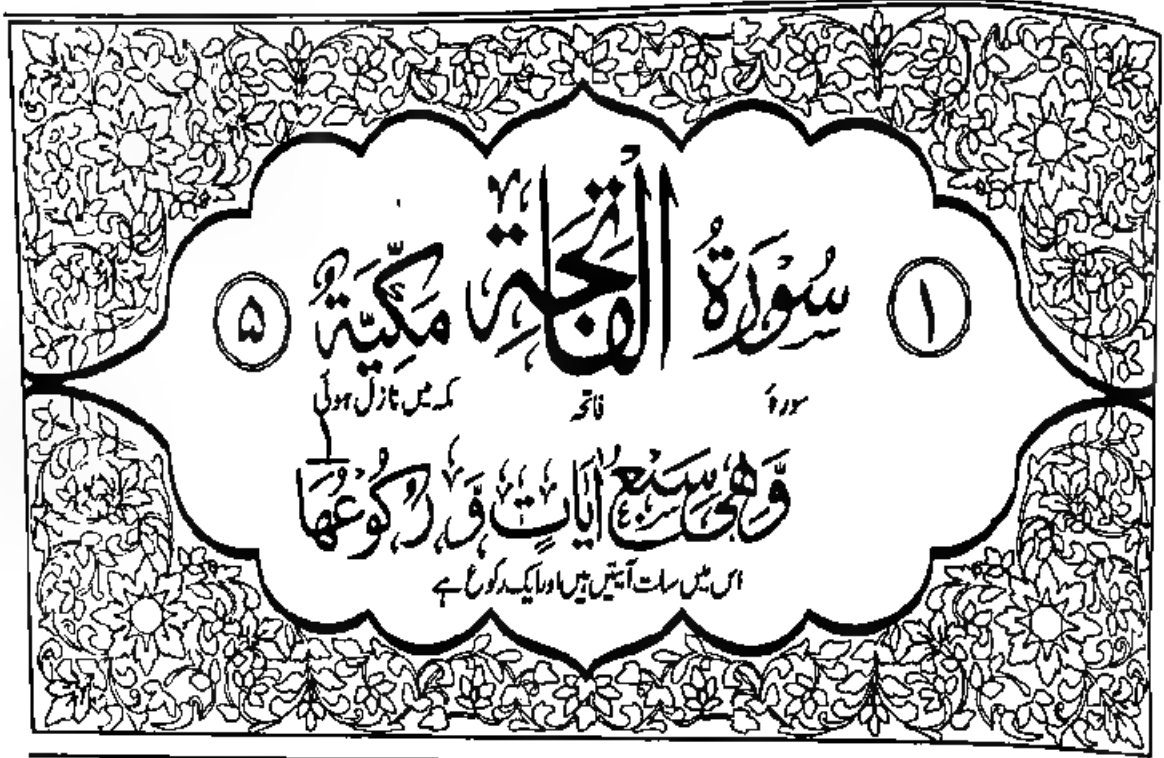 ١ سُوْرَةُ الْفَاتِحَةِ مَكِّيَّةٌ ۵
سورۂ فاتحہ مکہ میں نازل ہوئی
وَّهِيَ سَبْعُ اٰيَاتٍ وَّ رُكُوْعُهَا ١
اس میں سات آیتیں ہیں اور ایک رکوع ہے